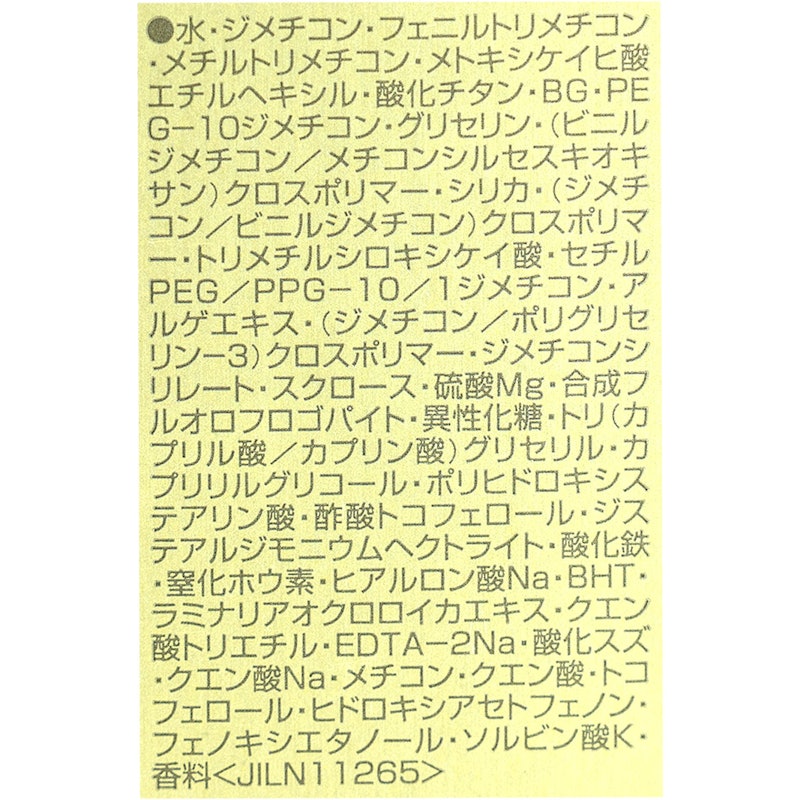 ●水・ジメチコン・フェニルトリメチコン
・メチルトリメチコン・メトキシケイヒ酸
エチルヘキシル・酸化チタン・BG・PE
G−10ジメチコン・グリセリン・(ビニル
ジメチコン／メチコンシルセスキオキ
サン)クロスポリマー・シリカ・(ジメチ
コン／ビニルジメチコン)クロスポリマ
ー・トリメチルシロキシケイ酸・セチル
PEG／PPG−10／1ジメチコン・ア
ルゲエキス・(ジメチコン／ポリグリセ
リン−3)クロスポリマー・ジメチコンシ
リレート・スクロース・硫酸Mg・合成フ
ルオロフロゴパイト・異性化糖・トリ(カ
プリル酸／カプリン酸)グリセリル・カ
プリリルグリコール・ポリヒドロキシス
テアリン酸・酢酸トコフェロール・ジス
テアルジモニウムヘクトライト・酸化鉄
・窒化ホウ素・ヒアルロン酸Na・BHT・
ラミナリアオクロロイカエキス・クエン
酸トリエチル・EDTA−2Na・酸化スズ
・クエン酸Na・メチコン・クエン酸・トコ
フェロール・ヒドロキシアセトフェノン・
フェノキシエタノール・ソルビン酸K・
香料<JILN11265>